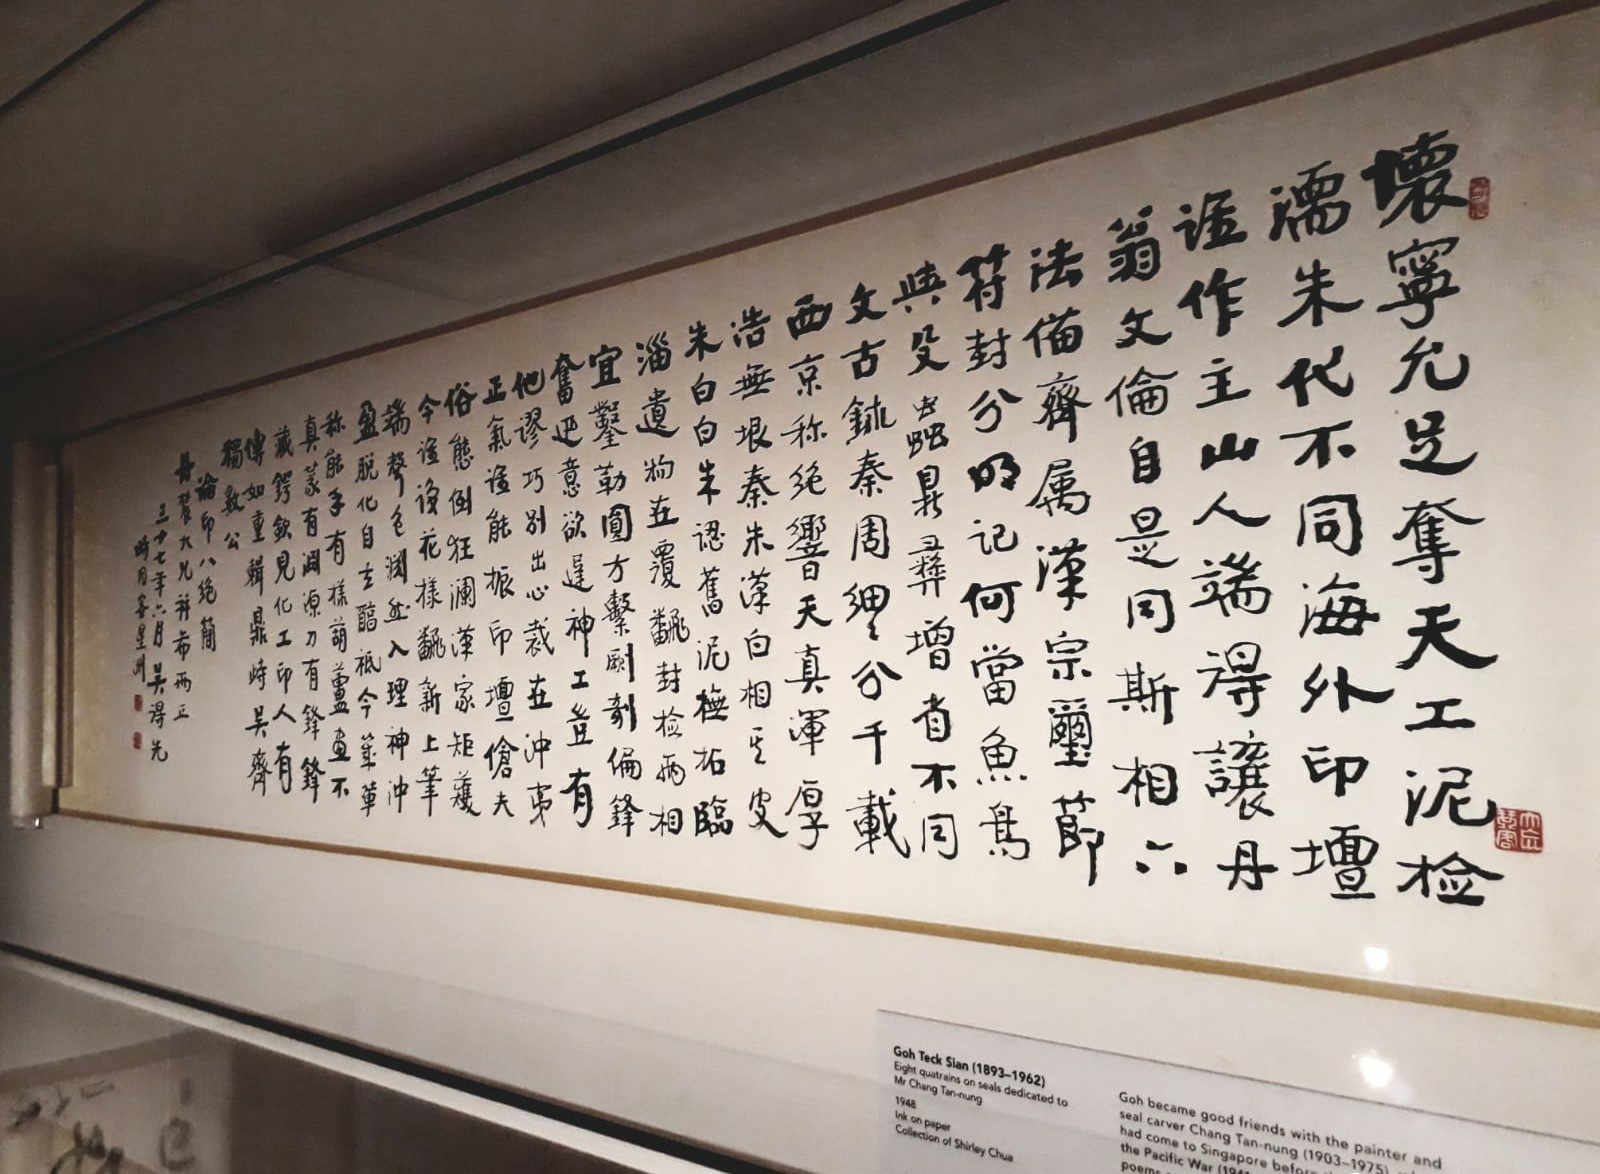 懷寧允足奪天工泥检
濡朱代不同海外印壇
誰作主山人端得讓丹
翁文倫自是同斯相六
法備齊属漢宗璽節
符封分明記何當魚鳥
與殳蟲鼎彝增省不同
文古鉥秦周分千載
西京称絶響天真渾厚
浩無垠秦朱漢白相
朱白白朱認舊泥橅拓臨
淄遺物在覆翻封检两相
宜鑿勒圓方繫劂剞偏鋒
奮迅意欲遲神工豈有
他谬巧别出心裁在沖夷
正氣誰能振印壇傖夫
俗態倒狂澜漢家矩矱
今誰識花樣翻新上筆
端聲色然入理神沖
盈脱化自臨祗今草
称能手有樣葫蘆畫不
真篆有淵源刀有鋒鋒
藏鍔欽見化工印人有
傳如重輯鼎峙吳齊
獨數公
論印八绝簡
丹農大兄并希两正
三十七年六月吳得先
時同客星洲
Goh Teck Sian (1893–1962)
Eight quatrains on seals dedicated to
Mr Chang Tan-nung
1948
Ink on paper
Collection of Shirley Chua
Goh became good friends with the painter and
seal carver Chang Tan-nung (1903–1975),
had come to Singapore before
the Pacific War
poems